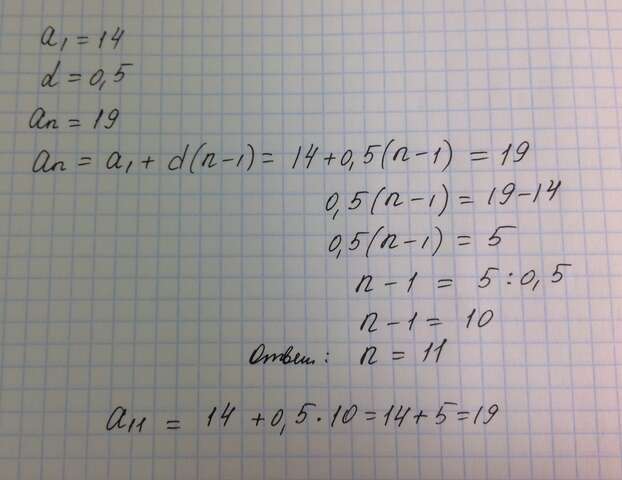 a₁ = 14
d = 0,5
aₙ = 19
aₙ = a₁ + d(n-1) = 14 + 0,5(n-1) = 19
0,5(n-1) = 19-14
0,5(n-1) = 5
n - 1 = 5 : 0,5
n - 1 = 10
Ответ: n = 11
a₁₁ = 14 + 0,5 · 10 = 14 + 5 = 19